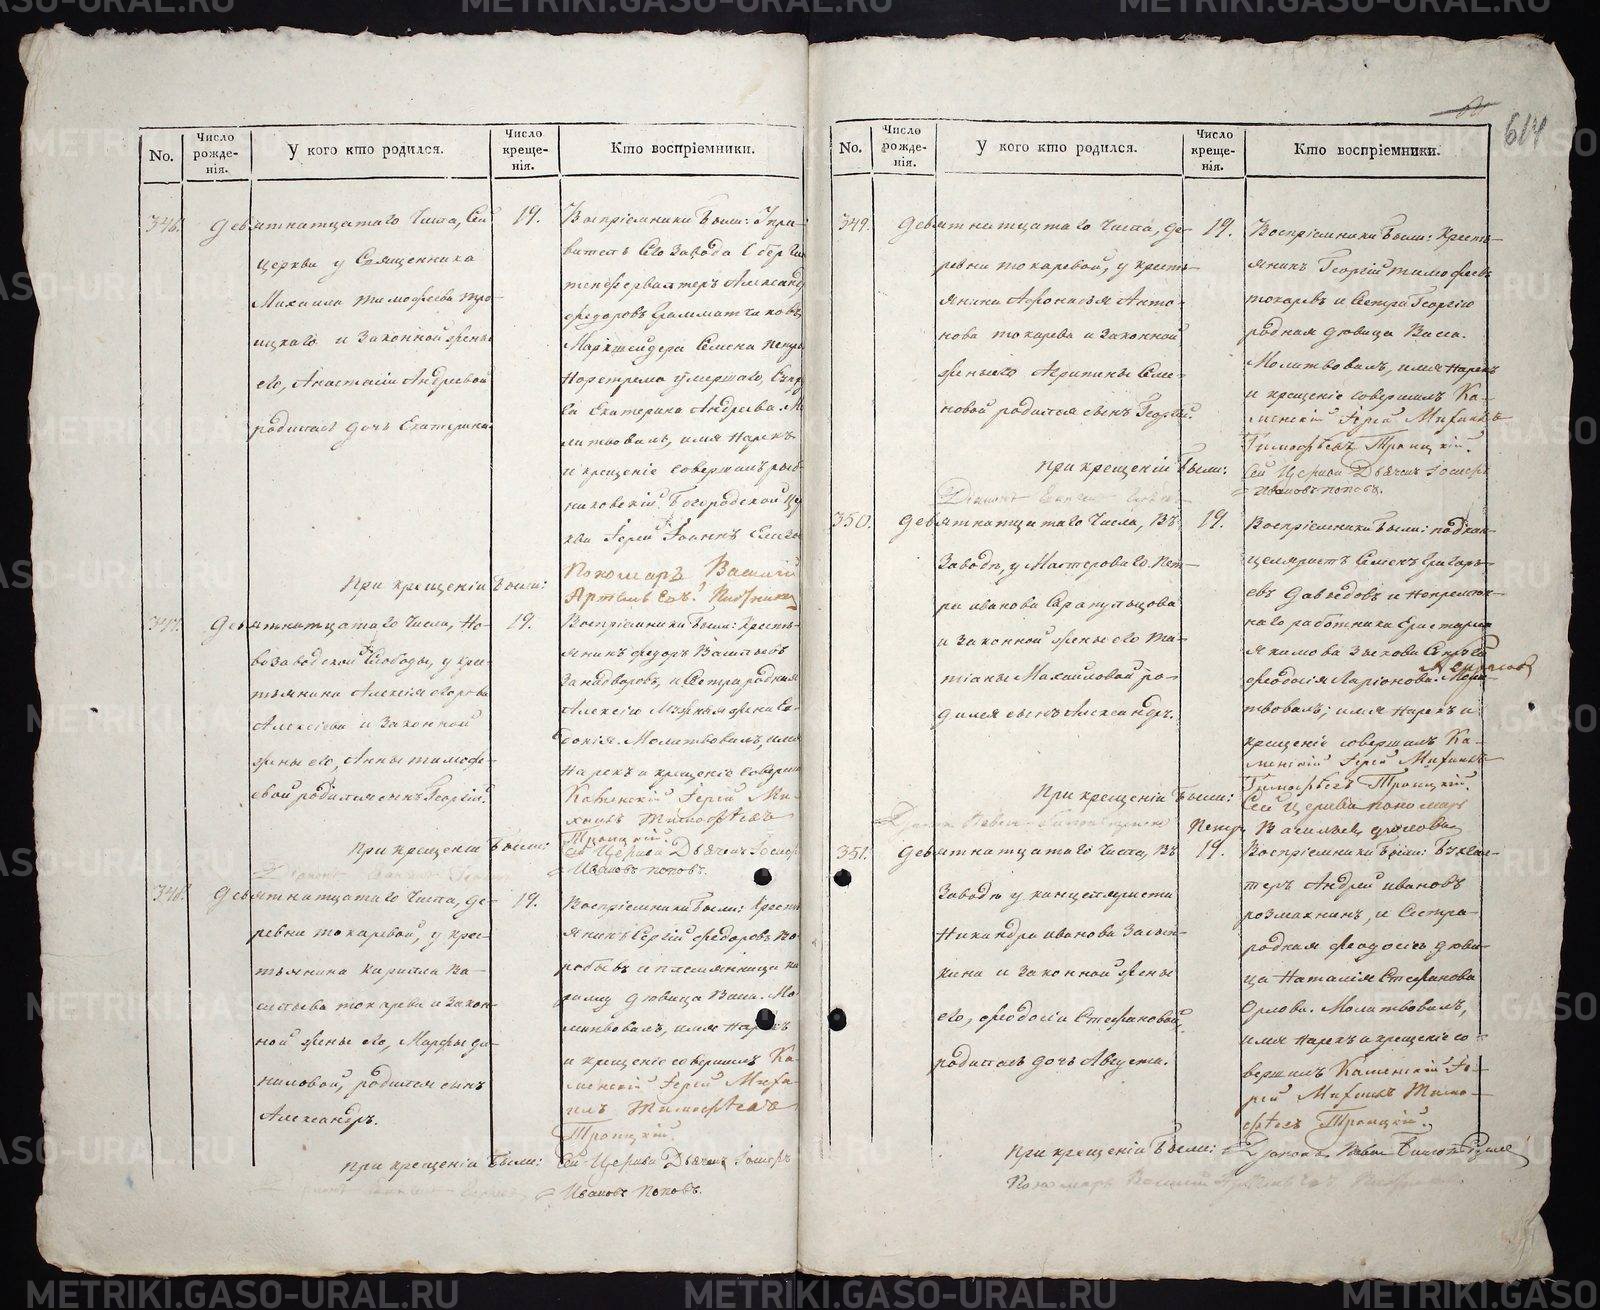 No.
Число рожде-нія.
У кого кто родился.
Число креще-нія.
Кто воспріемники.
346.
Девятнатцатаго Числа, Сей
церкви у Священника
Михаила Тимофеева Тро-
ицкаго и Законной жены
его, Анастасіи Андреевой
родилась дочь Екатерина.
19.
Воспріемники были:
витель Сего Завода Обер Ги-
тенфервалтеръ Александ
Федоровъ
Маркшейдера Семена Петро
умершаго,
Екатерина Андреева. М
литвовалъ, имя Нарекъ
и крещеніе совершилъ
Богородской це
кви Іерей Іоаннъ
При крещеніи были:
Пономарь Василій
347.
Девятнатцатаго Числа, Но-
возаводской Слободы, у кре-
стьянина Алексія Егорова
Алексіева и Законной
жены его, Анны Тимофе-
евой родился сынъ Георгій.
19.
Воспріемники были: Кресть-
янинъ Федоръ Васильевъ
и Сестра родная
Алексію
Молитвовалъ, имя
Нарекъ и крещеніе соверши
Каменскій Іерей Ми-
хаилъ Тимофѣевъ
Троицкій.
При крещеніи были:
Сей Церкви Дьячекъ
Ивановъ Поповъ.
348.
Девятнатцатаго Числа, де-
ревни Токаревой, у кре-
стьянина Кирилла Ва-
сильева Токарева и Закон-
ной жены его, Марфы Да-
ниловой, родился сынъ
Александръ.
19.
Воспріемники были: Кресть
янинъ Сергій Федоровъ Во
робьевъ и племянница Ки
риллу девица Васса. Мо-
литвовалъ, имя Нарекъ
и крещеніе совершилъ Ка-
менскій Іерей Миха
илъ Тимофѣевъ
Троицкій.
При крещеніи были:
Сей Церкви Дьячекъ
Ивановъ Поповъ.
614
No.
Число рожде-нія.
У кого кто родился.
Число креще-нія.
Кто воспріемники.
349.
Девятнатцатаго Числа, де-
ревни Токаревой, у кресть-
янина Афонасья Анто-
нова Токарева и Законной
жены его Агрипины Семе-
новой родился сынъ Георгій.
19.
Воспріемники были: Кресть-
янинъ Георгій Тимофеевъ
Токаревъ и Сестра Георгію
родная девица Васса.
Молитвовалъ, имя Нарекъ
и крещеніе совершилъ Ка-
менскій Іерей Михаилъ
Тимофѣевъ Троицкій.
При крещеніи были:
Сей Церкви Дьячекъ
Ивановъ Поповъ.
350.
Девятнатцатаго Числа, Въ
Заводе, у Мастероваго Пет-
ра Иванова Сарапульцова
и Законной жены его Та-
тіаны Михайловой ро-
дился сынъ Александръ.
19.
Воспріемники были: подкан-
целяристъ Семенъ Григорь-
евъ Давыдовъ и Непремен-
наго работника
Якимова Зыкова
Феодосія Ларіонова. Моли-
твовалъ, имя Нарекъ и
крещеніе совершилъ Ка-
менскій Іерей Михаилъ
Тимофѣевъ Троицкій.
При крещеніи были:
Сей Церкви пономарь
Петръ Васильевъ
351.
Девятнатцатаго Числа, Въ
Заводе у канцеляриста
Никандра Иванова Засып-
кина и Законной жены
его, Феодосіи Стефановой,
родилась дочь Августа.
19.
Воспріемники были: Бухгал-
теръ Андрей Ивановъ
Розмахнинъ, и Сестра
родная Феодосіѣ деви-
ца Наталія Стефанова
Орлова. Молитвовалъ,
имя Нарекъ и крещеніе со-
вершилъ Каменскій Іе-
рей Михаилъ Тимо-
фѣевъ Троицкій.
При крещеніи были:
METRIKI.GASO-URAL.RU